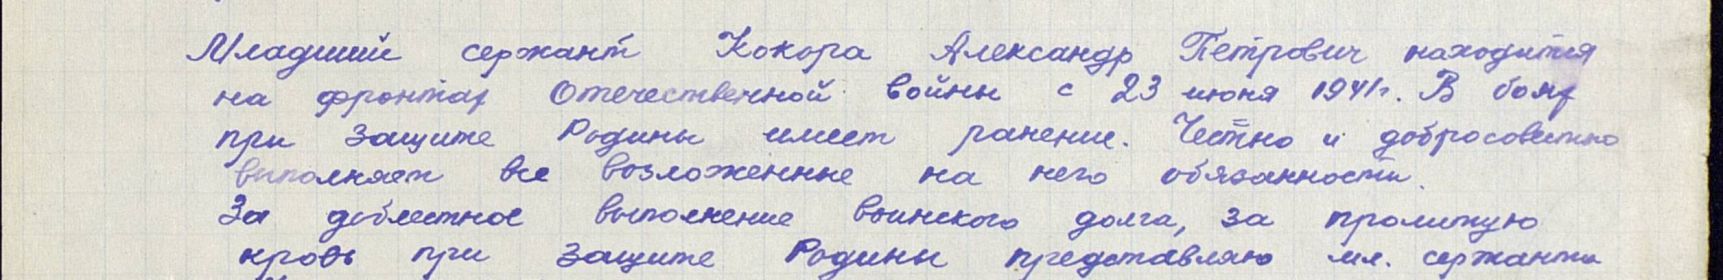 Младший сержант Кокора Александр Петрович находится
на фронтах Отечественной войны с 23 июня 1941г. В боях
при защите Родины имеет ранение. Честно и добросовестно
выполняет все возложенные на него обязанности.
За доблестное выполнение воинского долга, за пролитую
кровь при защите Родины представляю мл. сержанта